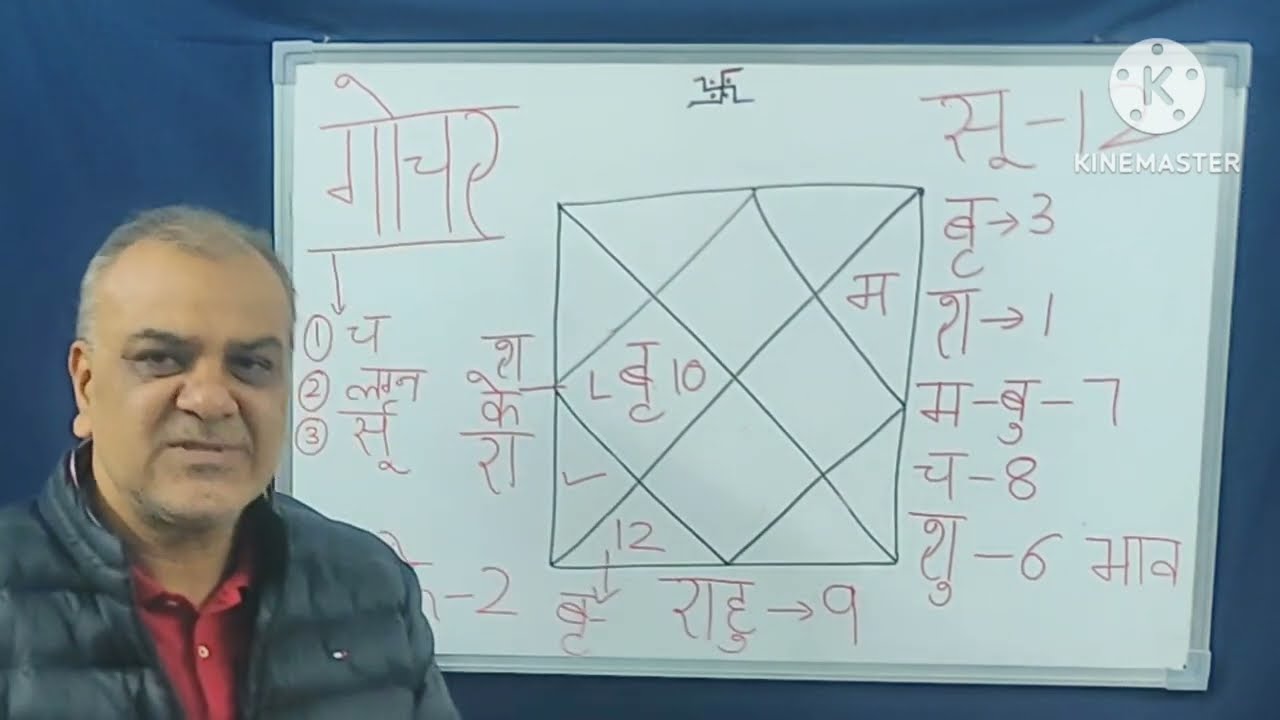 गोचर
① च
② लग्न
③ र्सू
श
के
रा
बृ 10
म
12
बृ
राहु → 9
सू - 12
बृ → 3
श → 1
म - बु - 7
च - 8
शु - 6 भाव
- 2
K
KINEMASTER